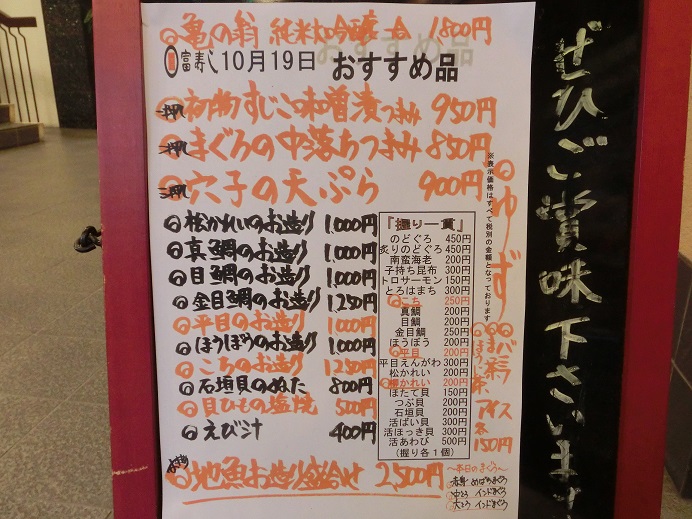 ◎亀の翁 純米大吟醸 一合 1800円
富寿し 10月19日 おすすめ品
一押 初物すじこ味噌漬つまみ 950円
二押 まぐろの中落ちつまみ 850円
三押 穴子の天ぷら 900円
◎松かれいのお造り 1,000円
◎真鯛のお造り 1,000円
◎目鯛のお造り 1,000円
◎金目鯛のお造り 1,250円
◎平目のお造り 1,000円
◎ほうぼうのお造り 1,000円
◎こちのお造り 1,250円
◎石垣貝のぬた 800円
◎貝ひもの塩焼 500円
◎えび汁 400円
◎地魚お造り盛合せ 2,500円
『握り一貫』
のどぐろ 450円
炙りのどぐろ 450円
南蛮海老 200円
子持ち昆布 300円
トロサーモン 150円
とろはまち 300円
◎こち 250円
真鯛 200円
目鯛 200円
金目鯛 250円
ほうぼう 200円
◎平目 200円
平目えんがわ 300円
松かれい 200円
◎柳かれい 200円
ほたて貝 150円
つぶ貝 200円
石垣貝 200円
活ばい貝 300円
活ほっき貝 300円
活あわび 500円
(握り各1個)
※表示価格はすべて税別の金額となっております
◎ゆず
◎抹茶
◎ほうじ茶
アイス
各
150円
～平日のまぐろ～
赤身 めばちまぐろ
中とろ インドまぐろ
大とろ インドまぐろ
ぜひご賞味下さいます